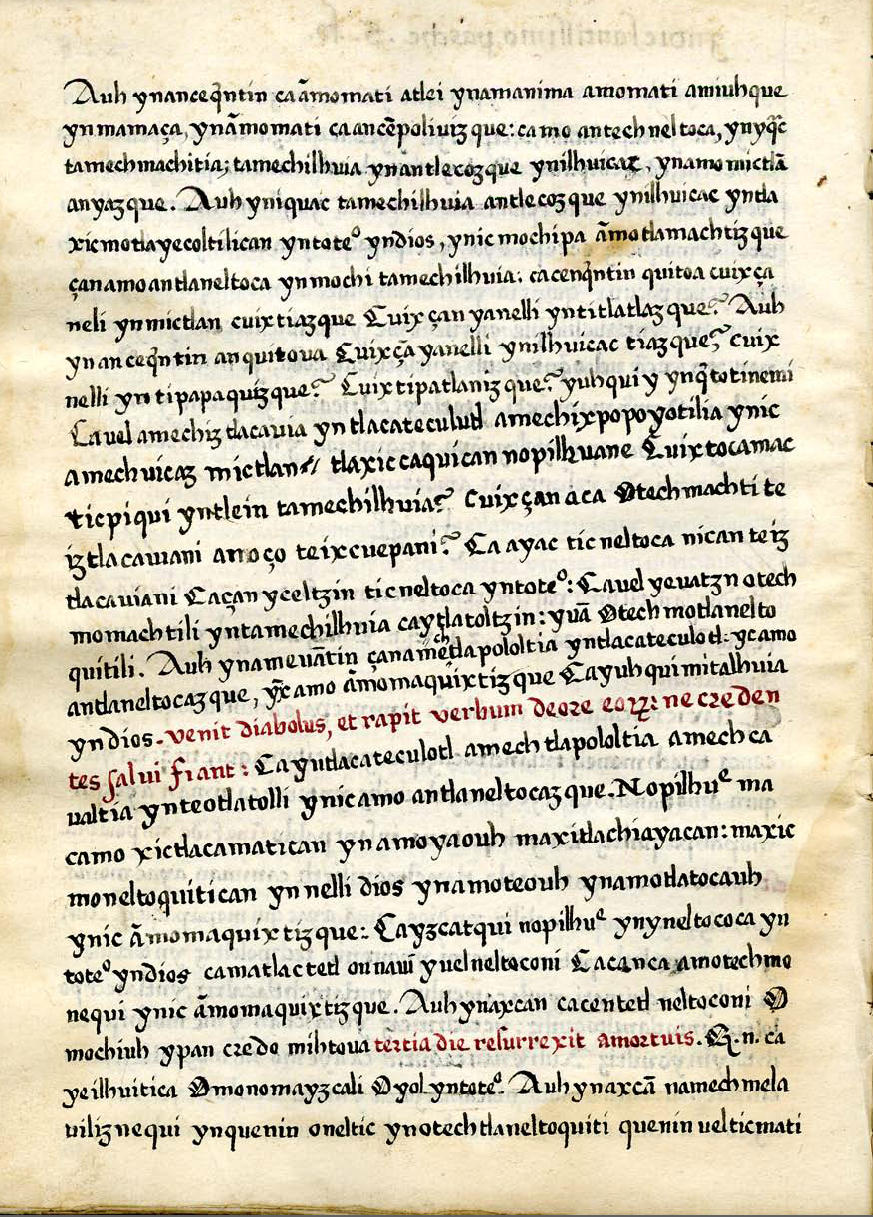 Auh ynancequintin ca āmomati atlei ynamanima amomati amiuhque
yn mamaça, ynāmomati ca ancēpoliuizque: ca mo antechneltoca, ynyq̄c
tamechmachitia; tamechilhuia ynantlecozque ynilhuicac, ynamo mictlā
anyazque. Auh yniquac tamechilhuia antlecozque ynilhuicac yntla
xicmotlayecoltilican yntoteº yndios, ynic mochipa āmotlamachtizque
çanamo antlaneltoca ynmochi tamechilhuia: ca cenq̄ntin quitoa cuix ça
neli ynmictlan cuix tiazque Cuix çan yanelli yntitlatlazque? Auh
ynancequintin anquitoua Cuix çā yanelli ynilhuicac tiazque? cuix
nelli yn tipapaquizque? Cuix tipatlanizque? yuhqui y ynq̄totinemi
Cauel amechiztlacauia yntlacateculutl amechixpopoyotilia ynic
amechuicaz mictlan // tlaxiccaquican nopilhuane Cuix tocamac
ticpiqui yntlein tamechilhuia? Cuix çan aca Otechmachti te
iztlacauiani anoço teixcuepani? Ca ayac ticneltoca nican teiz
tlacauiani Caçan yceltzin ticneltoca yntoteº: Cauel yeuatzn otech
momachtili yntamechilhuia caytlatoltzin: yuā Otechmotlanelto
quitili. Auh ynameuātin çanamēchtlapololtia yntlacateculotl ycamo
antlaneltocazque, yc̄amo āmomaquixtizque Cayuhquimitalhuia
yndios. venit diabolus, et rapit verbum de ore eorz: ne creden
tes salui fiant: Ca yntlacateculotl amechtlapololtia amechca
ualtia ynteotlatolli ynicamo antlaneltocazque. Nopilhuᵉ ma
camo xictlacamatican ynamoyaouh maxitlachiayacan: maxic
moneltoquitican ynnelli dios ynamoteouh ynamotlatocauh
ynic āmomaquixtizque: Cayzcatqui nopilhuᵉ ynyneltococa yn
toteº yndios camatlactetl onnaui yuelneltoconi Cacanca amotechmo
nequi ynic āmomaquixtizque. Auh ynaxcan cacentetl neltoconi O
mochiuh ypan credo mihtoua tertia die resurrexit amortuis. Q. n. ca
yeilhuitica Omonomayzcali Oyol yntoteº. Auh ynaxcā namechmela
uiliznequi ynquenin oneltic ynotechtlaneltoquiti quenin uelticmati